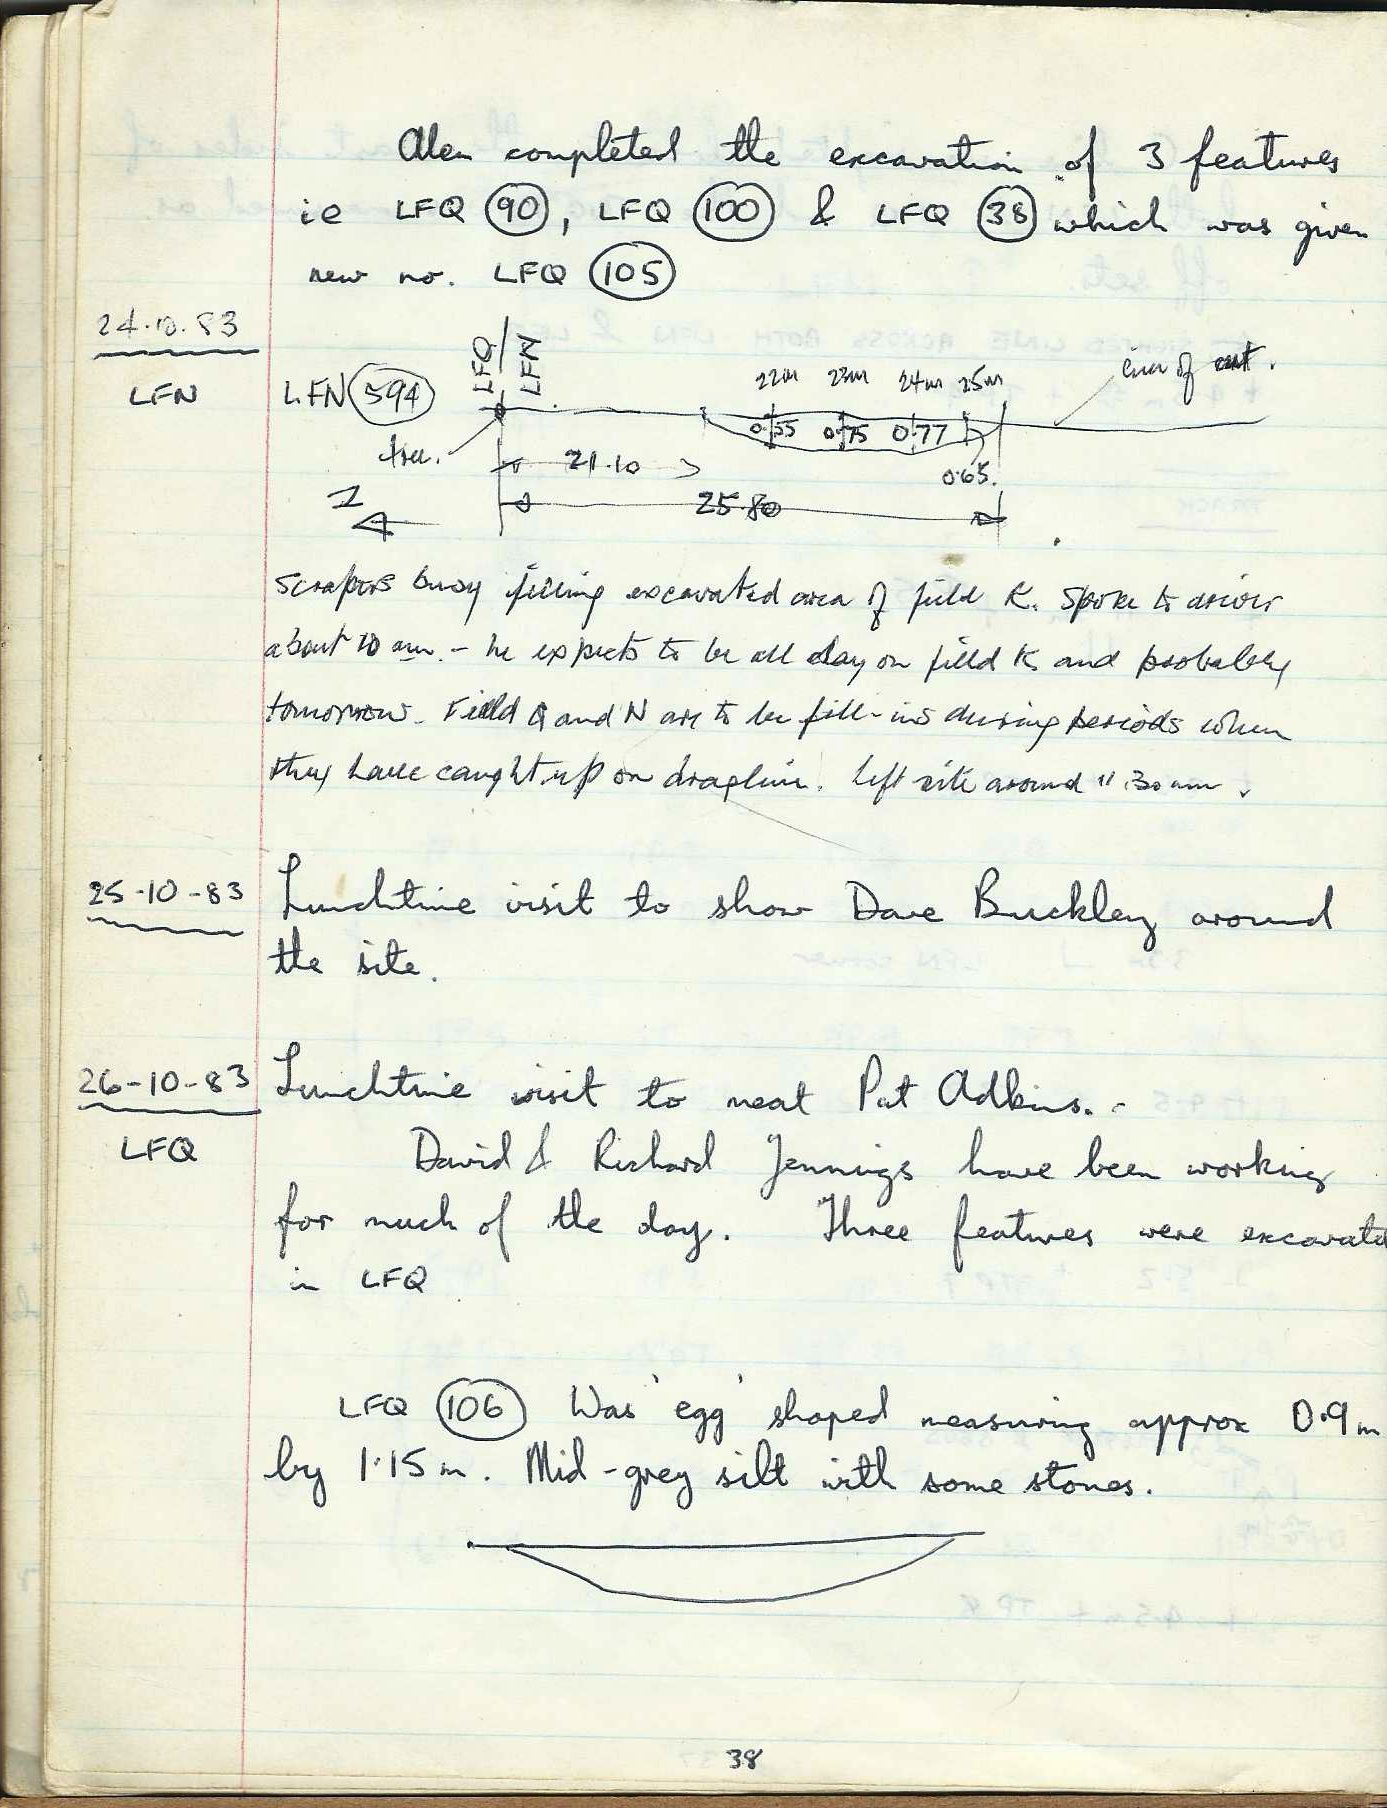 Alan completed the excavation of 3 features
ie LFQ 90, LFQ 100 & LFQ 38 which was given
new no. LFQ 105
24.10.83
LFN
LFN 594
LFQ
LFN
22m 23m 24m 25m
of cut.
0.55 0.75 0.77
0.65.
tree.
21.10
25.80
N
Scrapers busy filling excavated area of field K. Spoke to driver
about 10 am. - he expects to be all day on field K and probably
tomorrow. Field Q and N are to be fill-ins during periods when
they have caught up on dragline. Left site around 11.30 am.
25-10-83
Lunchtime visit to show Dave Buckley around
the site.
26-10-83
LFQ
Lunchtime visit to meet Pat Adkins. -
David & Richard Jennings have been working
for much of the day. Three features were excavated
in LFQ
LFQ 106 Was 'egg' shaped measuring approx 0.9m
by 1.15m. Mid-grey silt with some stones.
38